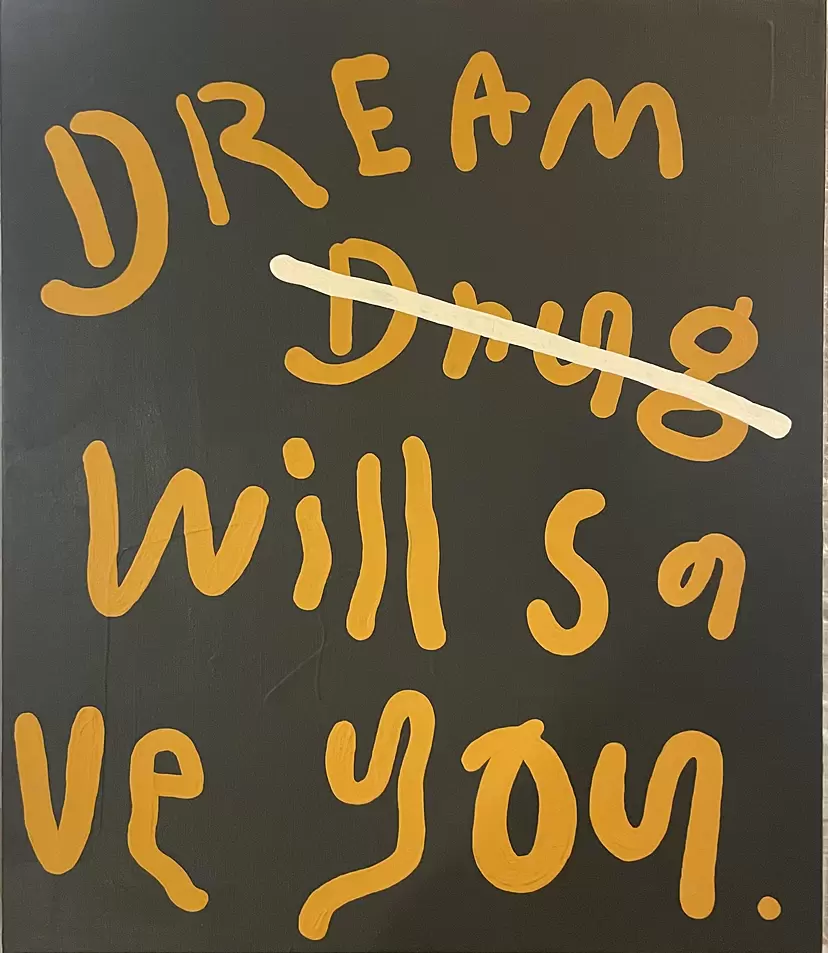 DREAM
Drug
Will sa
ve you.